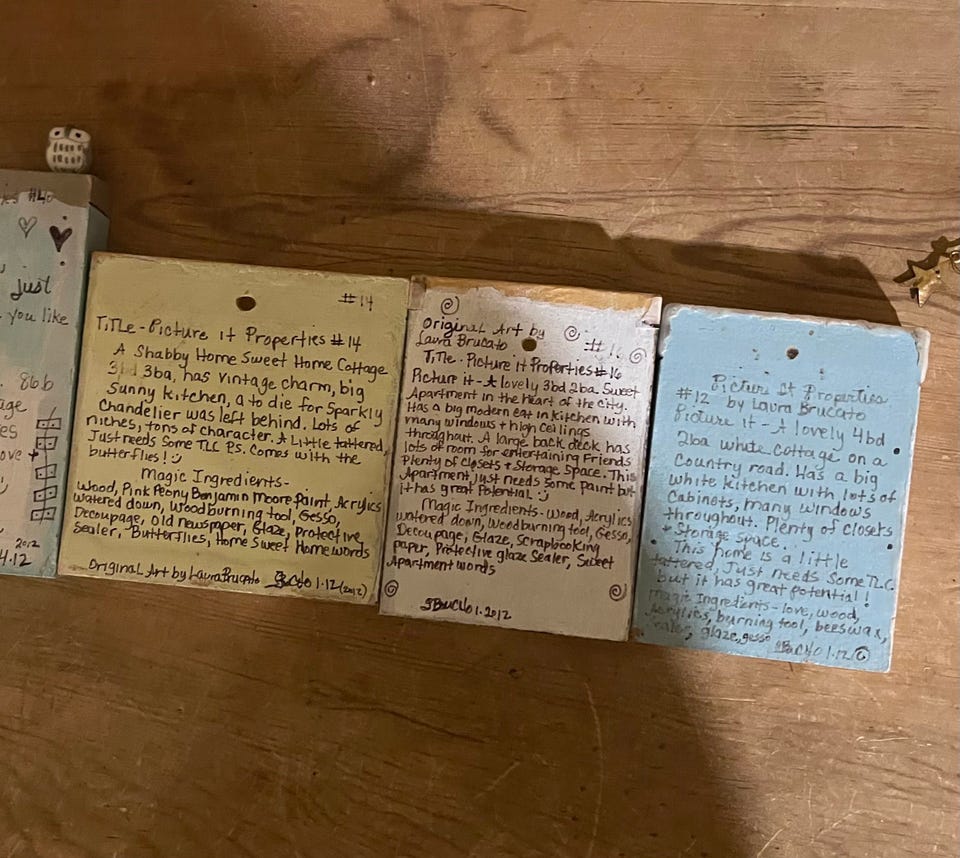 #40
just
you like
86b
2012
4.12
#14
Title - Picture it Properties #14
A Shabby Home Sweet Home Cottage
3bd 3ba, has vintage charm, big
Sunny kitchen, a to die for Sparkly
Chandelier was left behind. Lots of
niches, tons of character. A Little tattered,
Just needs Some TLC P.S. Comes with the
butterflies! :)
Magic Ingredients-
Wood, Pink Peony Benjamin Moore Paint, Acrylics
watered down, Wood burning tool, Gesso,
Decoupage, Old Newspaper, Glaze, Protective
Sealer, Butterflies, Home Sweet Home words
Original Art by Laura Brucato 1.12 (2012)
Original Art by
Laura Brucato
Title - Picture it Properties #16
Picture it - A lovely 3bd 2ba. Sweet
Apartment in the heart of the city.
Has a big modern eat in kitchen with
many windows + high ceilings
throughout. A large back deck has
lots of room for entertaining Friends
Plenty of Closets + Storage Space. This
Apartment just needs some paint but
it has great Potential :)
Magic Ingredients - Wood, Acrylics
watered down, Woodburning tool, Gesso,
Decoupage, Glaze, Scrapbooking
paper, Protective glaze Sealer, Sweet
Apartment words
1.2012
Picture It Properties
#12 by Laura Brucato
Picture it - A lovely 4bd
2ba white cottage on a
Country road. Has a big
white kitchen with lots of
Cabinets, many windows
throughout. Plenty of closets
+ Storage space.
This home is a little
tattered, Just needs Some TLC
but it has great potential!
Magic Ingredients - love, wood,
Acrylics, burning tool, beeswax,
glaze, gesso
1.12